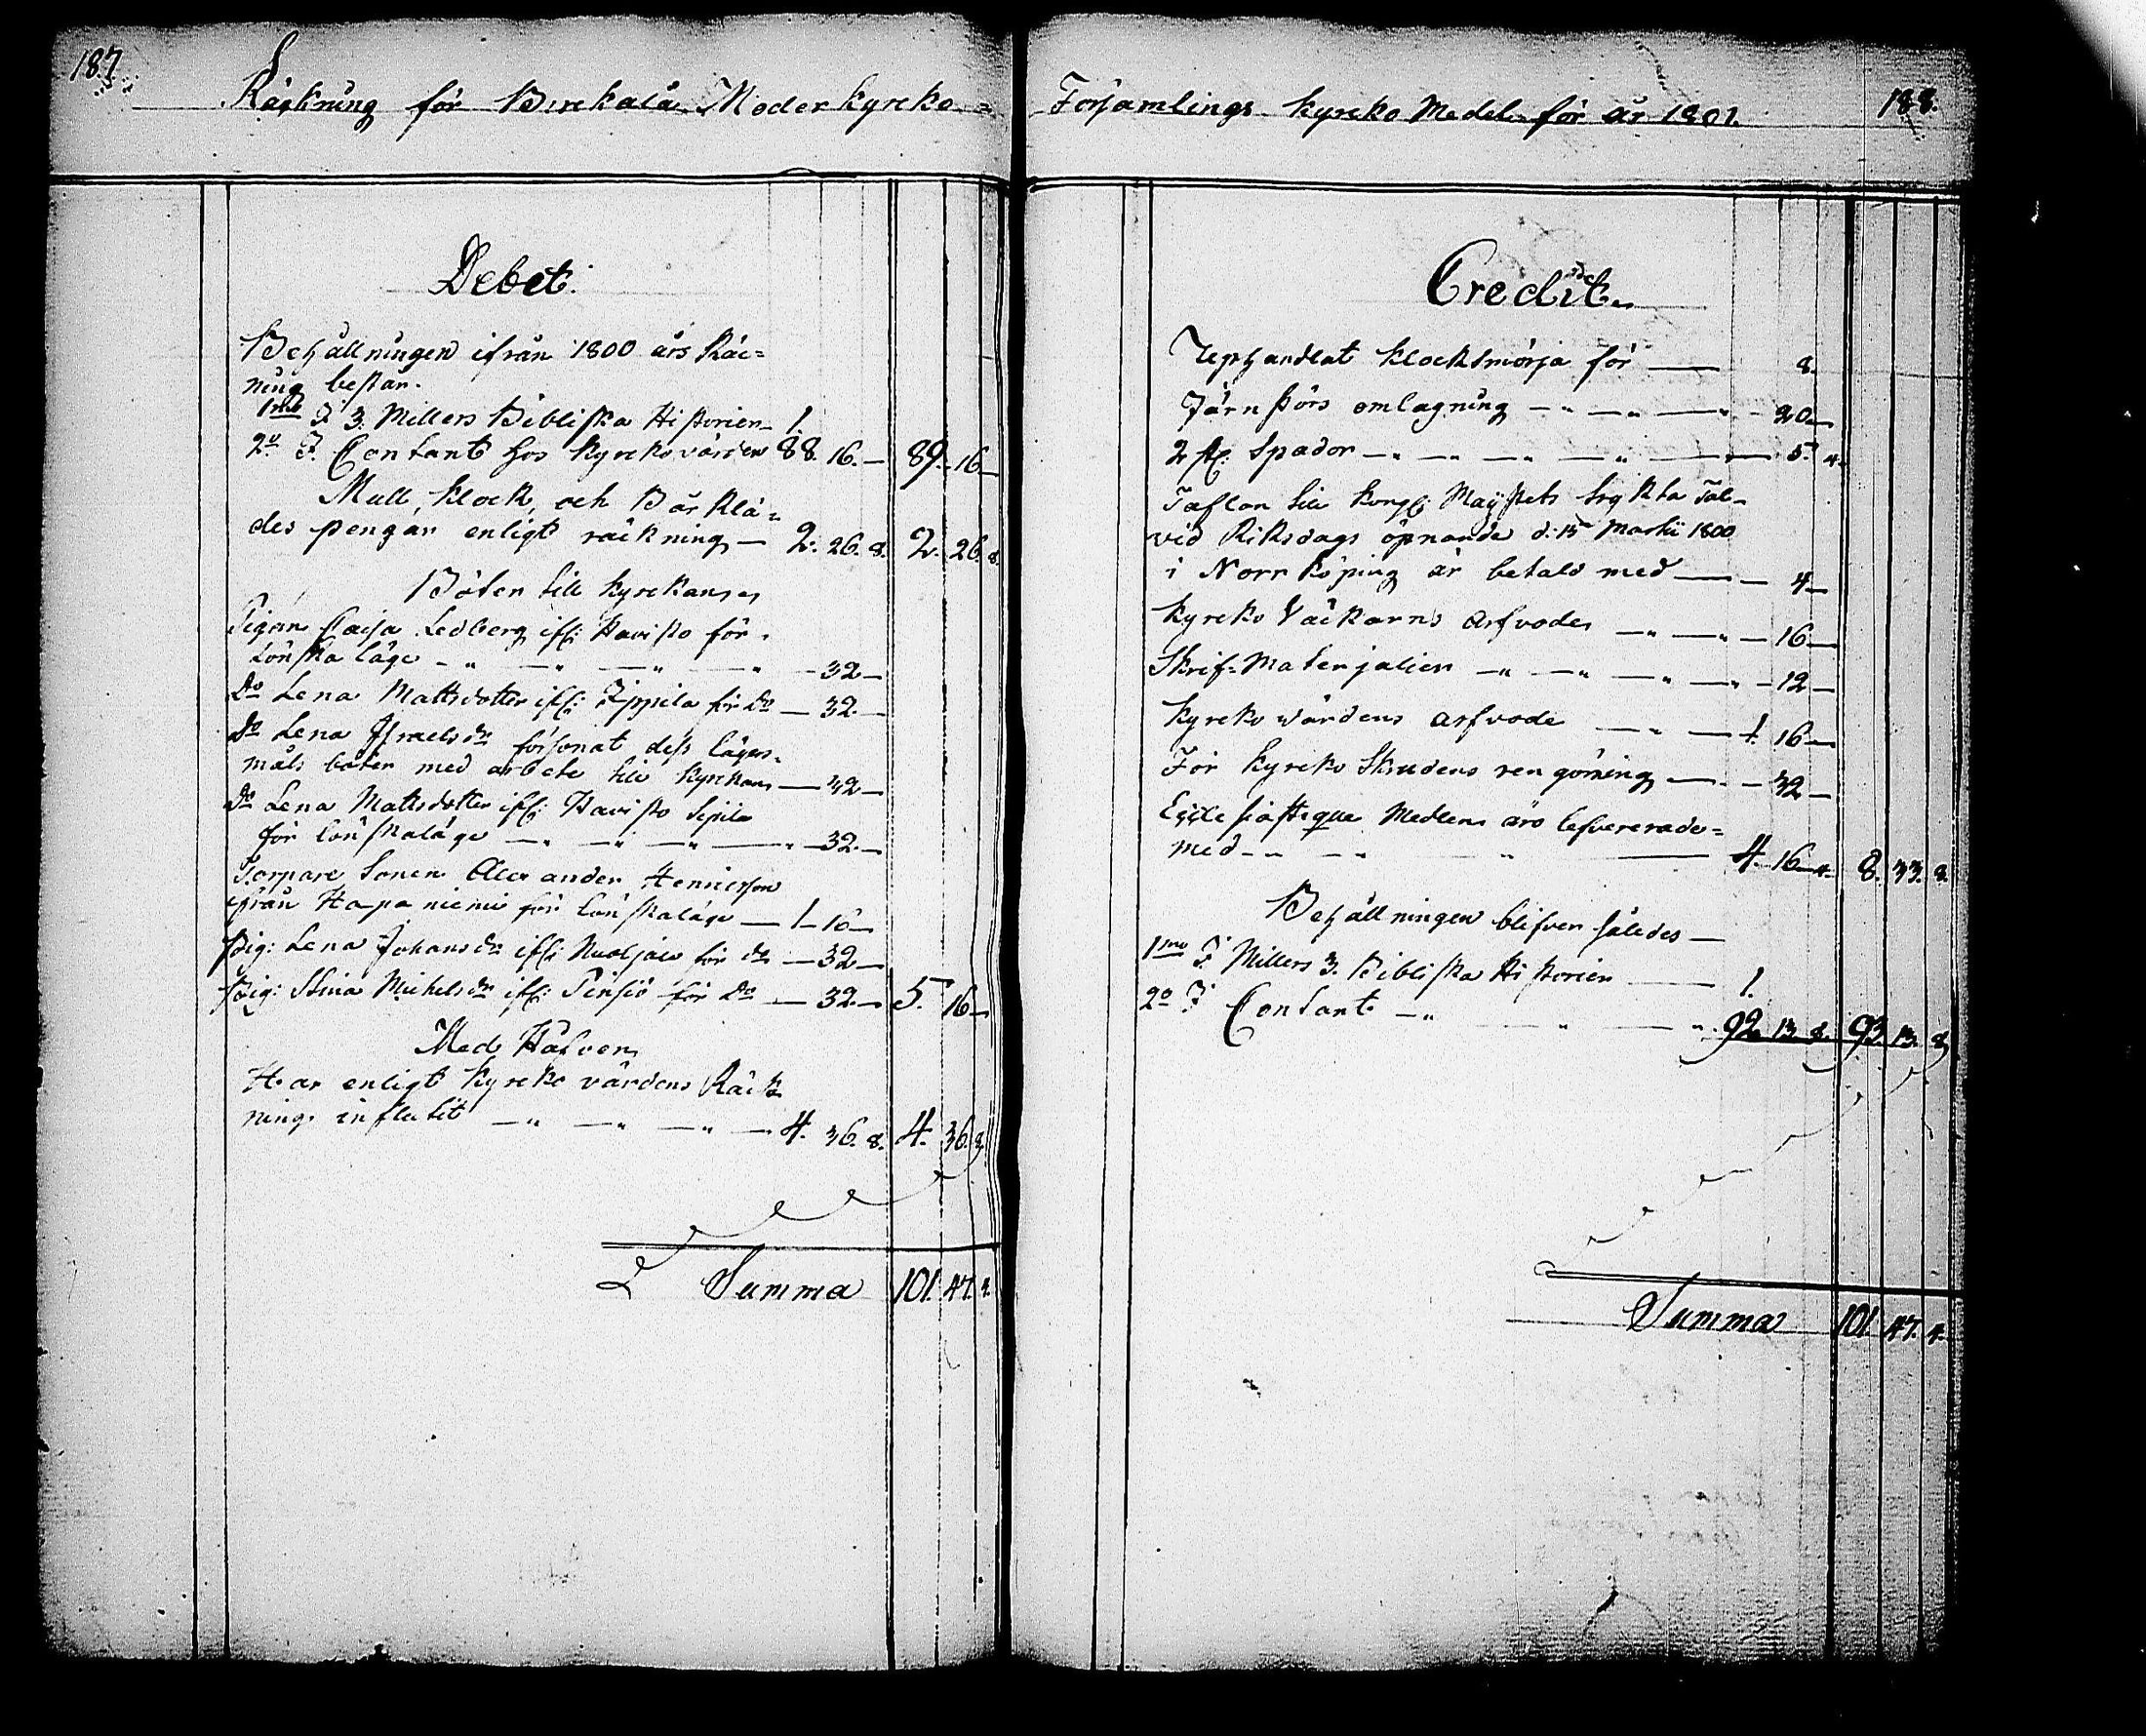 187
Räckning för Birckala Moderkyrcko=
Debet.
Behållningen ifrån 1800 års Räc=
ning består.
1mo I 3. Millers Bibliska Historier 1.
2o I Contant hos Kyrckovärden 88. 16. — 89. 16 —
Mull, Klock, och Bårklä=
des pengar enligt räckning — 2. 26. 8. 2. 26. 8.
Böter till Kyrckan
Pigan Caisa Ledberg ifr: Havisto för
Lönskaläge — 32 —
Do Lena Mattsdotter ifr: Zippila för Do — 32. —
Do Lena Israelsdr försonat dess lägers=
måls böter med arbete till Kyrckan — 32 —
Do Lena Mattsdotter ifr: Havisto Sipila
för Lönskaläge — 32. —
Torpare Sonen Alexander Henricsson
ifrån Hapaniemi för Lönskaläge — 1 — 16 —
Pig: Lena Johansdr ifr: Nuoljala för do — 32 —
Pig: Stina Michelsdr ifr: Pinsiö för Do — 32. — 5. 16 —
Med Håfven
Har enligt Kyrckovärdens Räck
ning influtit — 4. 36. 8. 4. 36. 8.
Summa 101. 47. 4.
188.
Församlings Kyrcko Medel för år 1801.
Credit.
Uphandlat Klocksmörja för — 8.
Järnstörs omlagning — 20 —
2 st: Spador — 5. 4.
Taflan till Kongl: Maijstets tryckta Tal
vid Riksdags öpnande d: 15 Martii 1800
i Norrköping är betald med — 4 —
Kyrcko Väckarns arfvode — 16 —
Skrif=Materjalier — 12 —
Kyrcko wärdens arfvode — 1. 16 —
För Kyrcko Skrudens rengöring — 32 —
Ecclesiastique Medlen äro lefvererade
med — 4. 16. 4. 8. 33. 8.
Behållningen blifver således —
1mo I Millers 3. Bibliska Historier — 1.
2o I Contant — 92. 13. 8. 93. 13. 8.
Summa 101. 47. 4.